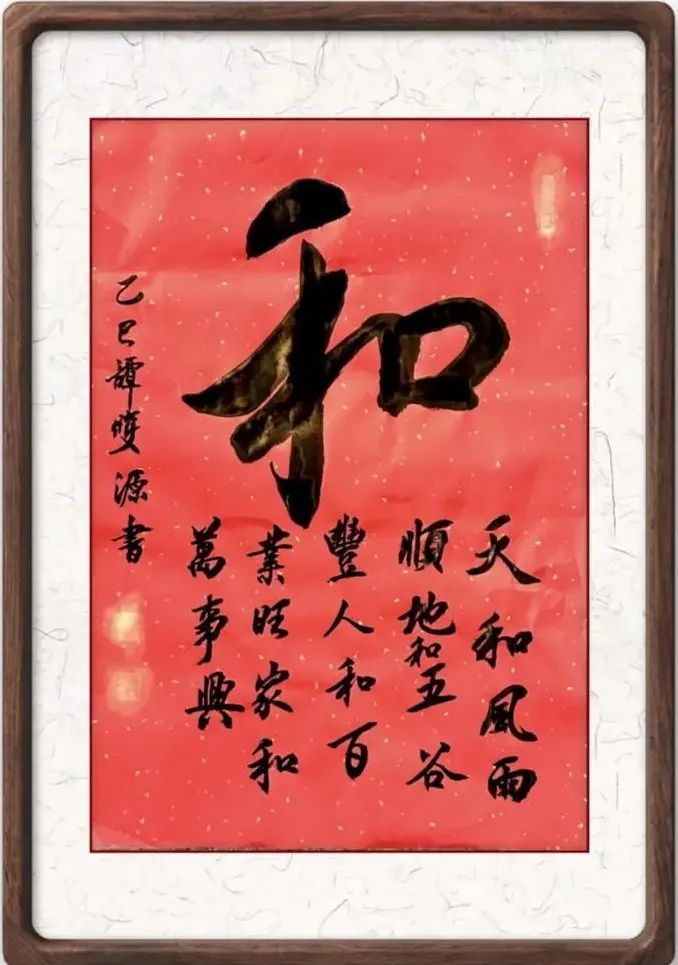 和
天和風雨
順地和五谷
豐人和百
業旺家和
萬事興
乙巳譚雙源書